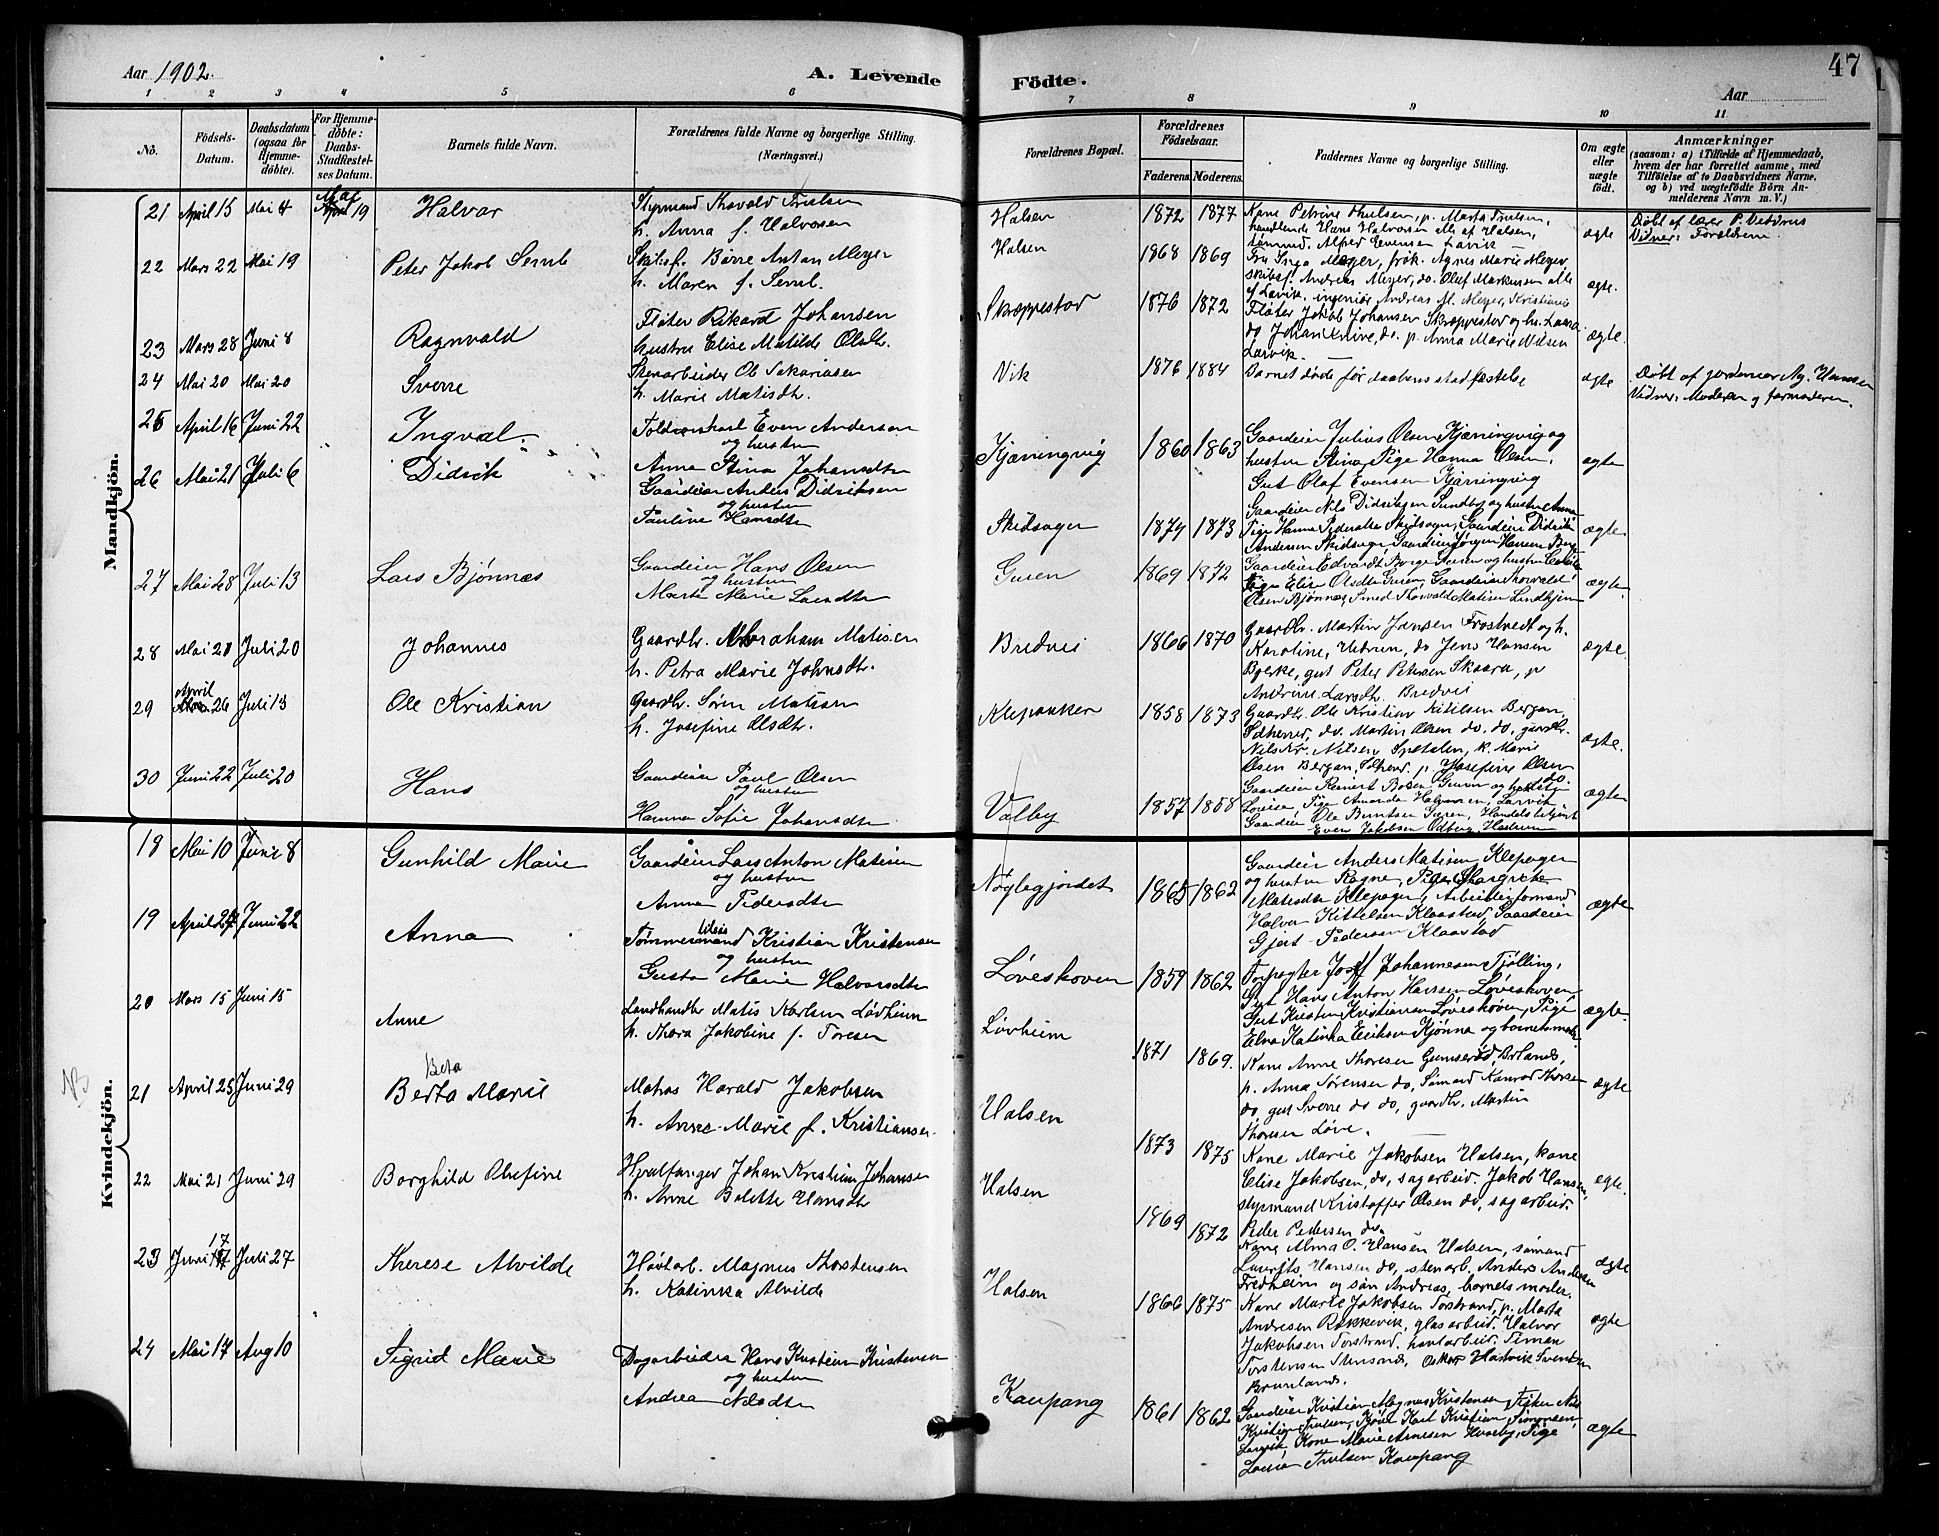 47
Aar 1902.
A. Levende Födte.
Aar
1 2 3 4 5 6 7 8 9 10 11
No.
Födsels-Datum.
Daabsdatum (ogsaa for Hjemme-døbte).
For Hjemme-døbte: Daabs-Stadfæstel-ses Datum.
Barnets fulde Navn.
Forældrenes fulde Navne og borgerlige Stilling.
(Næringsvei.)
Forældrenes Bopæl.
Forældrenes Födselsaar.
Faderens. Moderens.
Faddernes Navne og borgerlige Stilling.
Om ægte eller uægte födt.
Anmærkninger
(saasom: a) i Tilfælde af Hjemmedaab, hvem der har forrettet samme, med Tilföielse af to Daabsvidners Navne, og b) ved uægtefödte Börn An-melderens Navn m. V.)
Mandkjön.
21 April 15 Mai 4 Mai 19 Halvar
Styrmand Thorvald Trulsen
h. Anna f. Halvorsen
Halsen 1872 1877
ægte
Døbt af lærer P. Vedhus
Vidner: Forældrene
22 Mars 22 Mai 19 Peter Jakob Semb
Skibsf. Børre Anton Meyer
h. Maren f. Semb.
Halsen 1868 1869
Fru Inga Meyer, frøk. Agnes Marie Meyer
skibsf. Andreas Meyer, do. Olaf Markussen alle
af Larvik, ingeniør Andreas M. Meyer, Kristiania
ægte.
23 Mars 28 Juni 8 Ragnvald
Fløter Rikard Johansen
hustru Elise Matilde Olsdtr.
Skræppestad 1876 1872
Fløter Jakob Johansen Skræppestad og h. Laura
do Johan Knive, do. p. Anna Marie Nilsen
Larvik.
ægte.
24 Mai 20 Mai 20 Sverre
Stenarbeider Ole Sakariasen
h. Marie Matisdtr.
Vik 1876 1884
Barnet døde før daabens stadfæstelse
ægte
Døbt af jordemor Ag. Hansen
Vidner: Moderen og farmoderen.
25 April 16 Juni 22 Ingval
Toldrorskarl Even Andersen
og hustru
Anna Stina Johansdtr
Kjærringvig 1860 1863
Gaardeier Julius Olsen Kjærringvig og
hustru Stina, Pige Hanna Olsen,
Gut Olaf Evensen Kjærringvig
ægte
26 Mai 21 Juli 6 Didrik
Gaardeier Anders Didriksen
og hustru
Pauline Hansdtr
Skidsager 1874 1873
Gaardeier Nils Didriksen Sundby og hustru Anna
ægte
27 Mai 28 Juli 13 Lars Bjønnes
Gaardeier Hans Olsen
og hustru
Marte Marie Larsdtr
Guren 1869 1872
Pige Elise Olsdtr Guren, Gaardeier Thorvald
Olsen Bjønnes, Smed Thorvald Matisen Lindhjem
ægte
28 Mai 21 Juli 20 Johannes
Gaardbr. Abraham Matisen
h. Petra Marie Johnsdtr.
Bredvei 1866 1870
Gaardbr. Martin Jansen Frostvedt og h.
Karoline, Vetrun, do Jens Hansen
Bjerke, gut Peter Petersen Skaara, p
Andrine Larsdtr. Bredvei
ægte.
29 April 26 Juli 13 Ole Kristian
Gaardbr. Søren Matisen
h. Josefine Olsdtr.
Klepaaker 1858 1873
Gaardbr. Ole Kristian Kittilsen Bergan,
Sdherred, do. Martin Olsen do, do, gaardbr.
Nils Kr. Nilsen Spetalen, k. Marie
Olsen Bergan, Sdherred. p, Josefine Olsen
do.
ægte.
30 Juni 22 Juli 20 Hans
Gaardeier Paul Olsen
og hustru
Hanna Sofie Johansdtr
Valby 1857 1858
Louise, Pige Amanda Halvorsen, Larvik
Even Jakobsen Odberg, Hedrum
ægte
Kvindekjön.
18 Mai 10 Juni 8 Gunhild Marie
Gaardeier Lars Anton Matisen
og hustru
Anna Pedersdtr
Nøglegjordet 1865 1862
Gaardeier Anders Matisen Klepager
og hustru Ragne, Pige Margrete
Matisdtr Klepager, Arbeiderformand
Halvor Kittelsen Klaastad, Gaardeier
Gjert Pedersen Klaastad
ægte
19 April 24 Juni 22 Anna
Tømmermand Kristian Kristensen
og hustru
Gusta Marie Halvorsdtr
Løveskoven 1859 1862
Forpagter Josef Johannesen Tjølling,
Gut Hans Anton Hansen Løveskoven
Gut Kristen Kristiansen Løveskoven, Pige
Elna Katinka Eriksen Kjønna og barnets moder.
ægte.
20 Mars 15 Juni 15 Anne
Landhandler Matis Karlsen Løvheim
h. Thora Jakobine f. Toresen
Løvheim 1871 1869.
Kone Anne Thoresen Gumserød, Brlands,
p. Anna Sørensen do, Sømand Konrad Thorsen
do, gut Sverre do do, gaardbr. Martin
Thoresen Løve.
ægte
NB
21 April 25 Juni 29 Berta Marie
Beta
Matros Harald Jakobsen
h. Anne Marie f. Kristiansen
Halsen 1873 1875
Kone Marie Jakobsen Halsen, kone
Elise Jakobsen, do, sagarbeid. Jakob Hansen,
styrmand Kristoffer Olsen do, sagarbeid.
Peder Pedersen do.
ægte.
22 Mai 21 Juni 29 Borghild Olefine
Hvalfanger Johan Kristian Johansen
h. Anne Bolette Hansdtr
Halsen 1869 1872
Kone Alma O. Hansen Halsen, sømand
Laurits Hansen do, stenarb. Anders Andersen
Fredheim og søn Andreas, barnets moder.
ægte
23 Juni 17 Juli 27 Therese Alvilde
Høvlarb. Magnus Thorstensen
h. Katinka Alvilde
Halsen 1866 1875
Kone Marie Jakobsen Torstrand, p. Marta
Andresen Rekkevik, glasarbeid. Halvor
Jakobsen Torstrand, høvlarbeid. Timan
Torstensen Stensnes, Oskar Hartvik Svendsen
Brunlanes.
ægte
24 Mai 17 Aug 10 Sigrid Marie
Dagarbeider Hans Kristian Kristensen
og hustru
Andrea Nilsdtr
Kaupang 1861 1862
Gaardeier Kristian Magnus Kristensen, Fisker Nils
Kristian Trulsen, Kjører Karl Kristian Simonsen,
Larvik, Kone Marie Arnesen Huseby, Pige
Lovisa Trulsen Kaupang
ægte